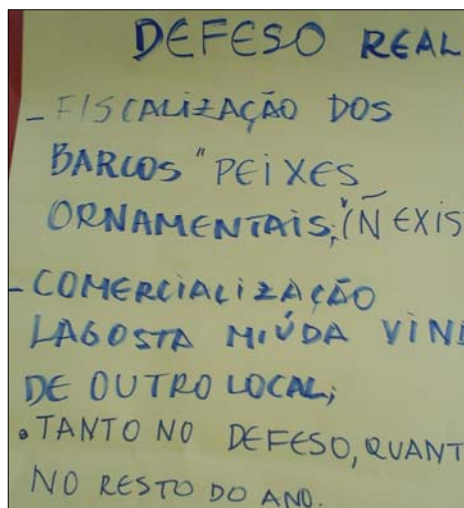 DEFESO REAL
- FISCALIZAÇÃO DOS
BARCOS "PEIXES
ORNAMENTAIS;" (Ñ EXIS
- COMERCIALIZAÇÃO
LAGOSTA MIÚDA VIN
DE OUTRO LOCAL;
• TANTO NO DEFESO, QUANT
NO RESTO DO ANO.